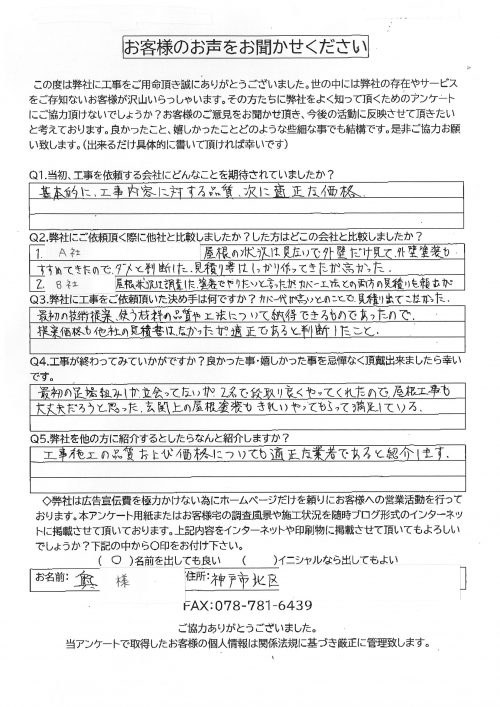 お客様のお声をお聞かせください
この度は弊社に工事をご用命頂き誠にありがとうございました。世の中には弊社の存在やサービス
をご存知ないお客様が沢山いらっしゃいます。その方たちに弊社をよく知って頂くためのアンケート
にご協力頂けないでしょうか？お客様のご意見をお聞かせ頂き、今後の活動に反映させて頂きたい
と考えております。良かったこと、嬉しかったことどのような些細な事でも結構です。是非ご協力お願
い致します。（出来るだけ具体的に書いて頂ければ幸いです）
Q1.当初、工事を依頼する会社にどんなことを期待されていましたか？
基本的に、工事内容に対する品質、次に適正な価格、
Q2.弊社にご依頼頂く際に他社と比較しましたか？した方はどこの会社と比較しましたか？
1. A社 屋根の状況は見ないで外壁だけ見て、外壁塗装も
すすめてきたので、ダメと判断した。見積り書はしっかり作ってきたが高かった。
2. B社 屋根状況は調査し、塗装でやりたいと言ったがカバー工法との両方の見積りを頼むが
Q3.弊社に工事をご依頼頂いた決め手は何ですか？ カバー代が高いとのことで見積り出てこなかった。
最初の技術提案、使う材料の品質や工法について納得できるものであったので、
提案価格も他社の見積書はなかったが適正であると判断したこと、
Q4.工事が終わってみていかがですか？良かった事・嬉しかった事を忌憚なく頂戴出来ましたら幸
いです。
最初の足場組みしか立会ってないが2名で段取り良くやってくれたので、屋根工事も
大丈夫だろうと思った。玄関上の屋根塗装もきれいやってもらって満足している。
Q5.弊社を他の方に紹介するとしたらなんと紹介しますか？
工事施工の品質および価格についても適正な業者であると紹介します。
◇弊社は広告宣伝費を極力かけない為にホームページだけを頼りにお客様への営業活動を行って
おります。本アンケート用紙またはお客様宅の調査風景や施工状況を随時ブログ形式のインターネッ
トに掲載させて頂いております。上記内容をインターネットや印刷物に掲載させて頂いてもよろしい
でしょうか？下記の中から〇印をお付け下さい。
（ 〇 ）名前を出しても良い （ ）イニシャルなら出してもよい
お名前： 奥 様 住所： 神戸市北区
FAX：078-781-6439
ご協力ありがとうございました。
当アンケートで取得したお客様の個人情報は関係法規に基づき厳正に管理致します。